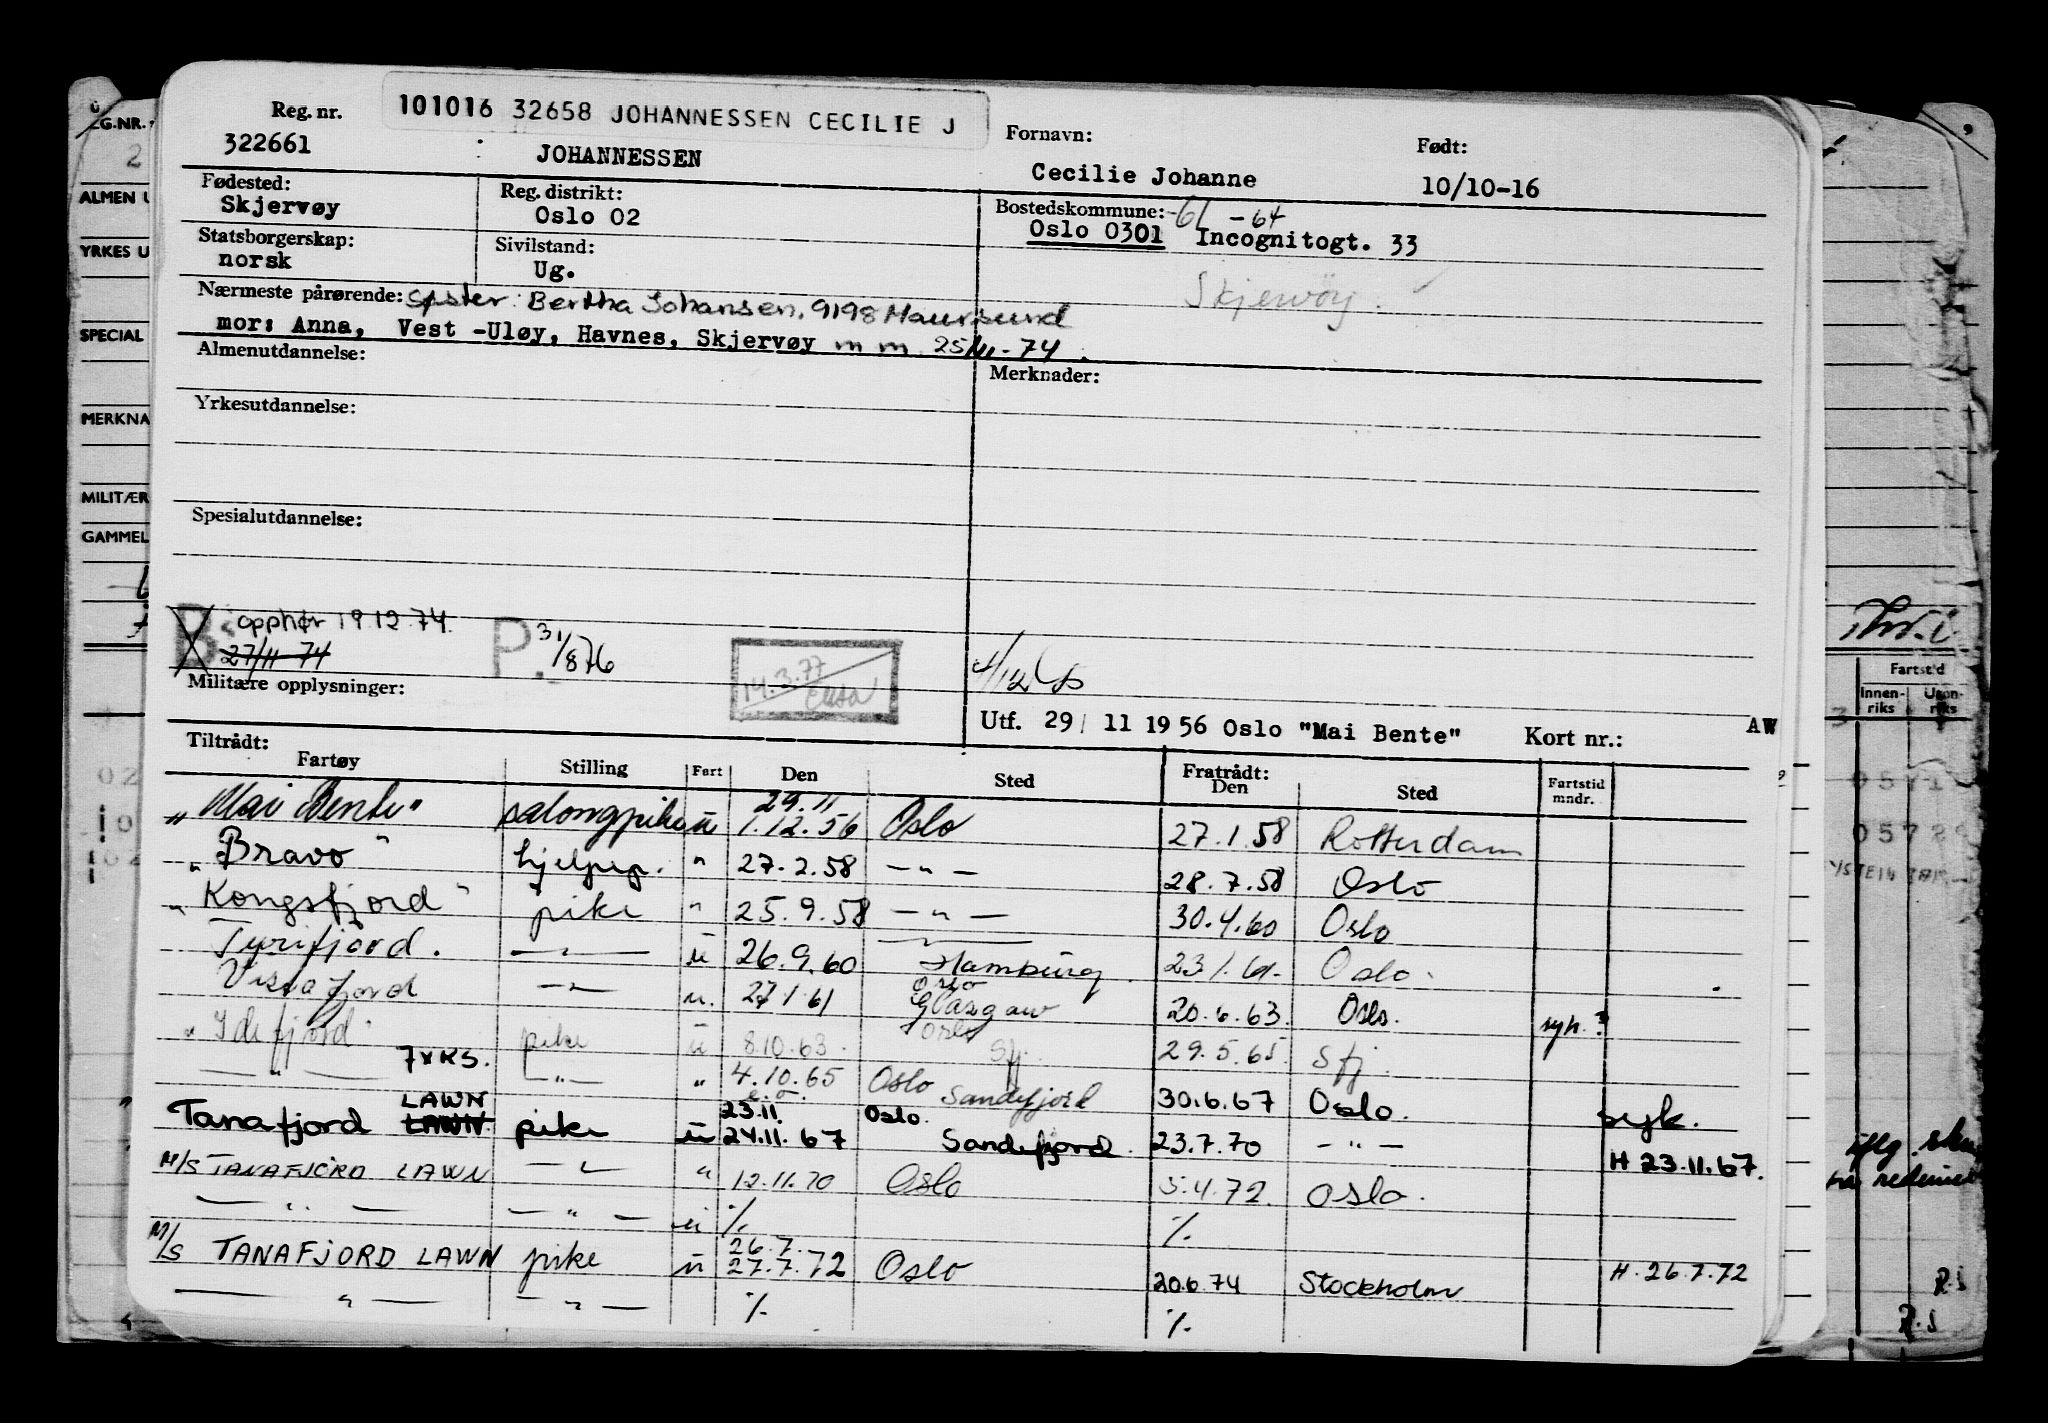 101016 32658 JOHANNESSEN CECILIE J
Reg. nr. 322661 : JOHANNESSEN Fornavn: Cecilie Johanne Født: 10/10-16
Fødested: Skjervøy Reg. distrikt: Oslo 02 Bostedskommune: -61 -64 Oslo 0301 Incognitogt. 33
Statsborgerskap: norsk Sivilstand: Ug.
Skjervøy
Nærmeste pårørende: Søster: Bertha Johansen, 9198 Maursund
mor: Anna, Vest -Uløy, Havnes, Skjervøy m m 25/11-74
Almenutdannelse: Merknader:
Yrkesutdannelse:
Spesialutdannelse:
B opphør 19.12.74. P. 31/8 76
27/11 74 14.3.77 4/12
Militære opplysninger:
Utf. 29/ 11 19 56 Oslo "Mai Bente" Kort nr.: AW
Tiltrådt: Fratrådt:
Fartøy Stilling Fart Den Sted Den Sted Fartstid mndr.
"Mai Bente" salongpike u 29.11 1.12.56 Oslo 27.1.58 Rotterdam
"Bravo" hjelpep. " 27.2.58 — " — 28.7.58 Oslo
"Kongsfjord" pike " 25.9.58 — " — 30.4.60 Oslo
Tyrifjord. — " — u 26.9.60 — " — Hamburg 23.1.61. Oslo.
Vistafjord — " — u. 27.1.61 Oslo Glasgow 20.6.63. Oslo. syk.?
"Idefjord" pike u 8.10.63. Oslo Sfj. 29.5.65. Sfj.
— " — 7xKS. — " — " 4.10.65 Oslo Sandefjord 30.6.67 Oslo. syk.
Tanafjord LAWN LAWN pike u 23.11 24.11.67 Oslo. Sandefjord. 23.7.70 — " — H 23.11.67.
M/S TANAFJORD LAWN — " — " 12.11.70 Oslo 5.4.72. Oslo.
— " — — " — u %. %.
M/S TANAFJORD LAWN pike u 26.7. 27.7.72 Oslo 20.6.74 Stockholm H. 26.7.72
— " — — " — %. %.
ALMEN U
YRKES U
SPECIAL
MERKNA
MILITÆR
GAMMEL
Fartstid
Innenriks
R.S
R.S